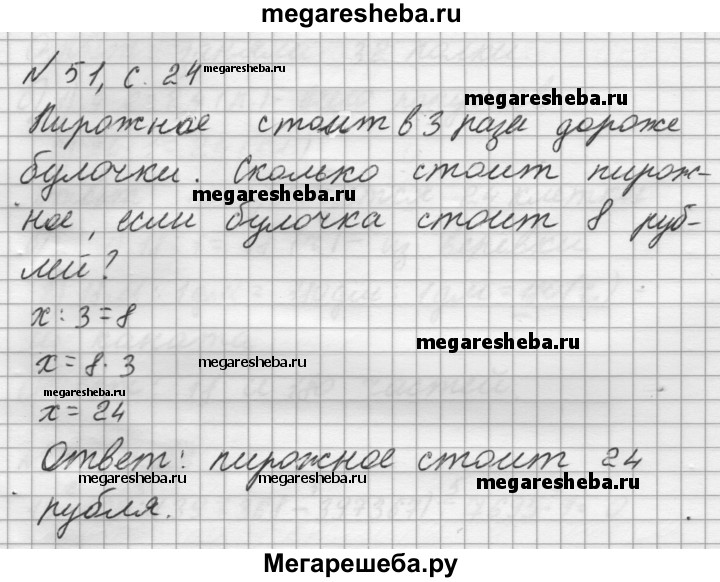 megaresheba.ru
№ 51, с. 24 megaresheba.ru
megaresheba.ru
Пирожное стоит в 3 раза дороже
булочки. Сколько стоит пирож-
megaresheba.ru
ное, если булочка стоит 8 руб-
лей?
x : 3 = 8
megaresheba.ru
x = 8 · 3 megaresheba.ru
megaresheba.ru
x = 24
Ответ: пирожное стоит 24
megaresheba.ru megaresheba.ru megaresheba.ru
рубля.
Мегарешеба.ру